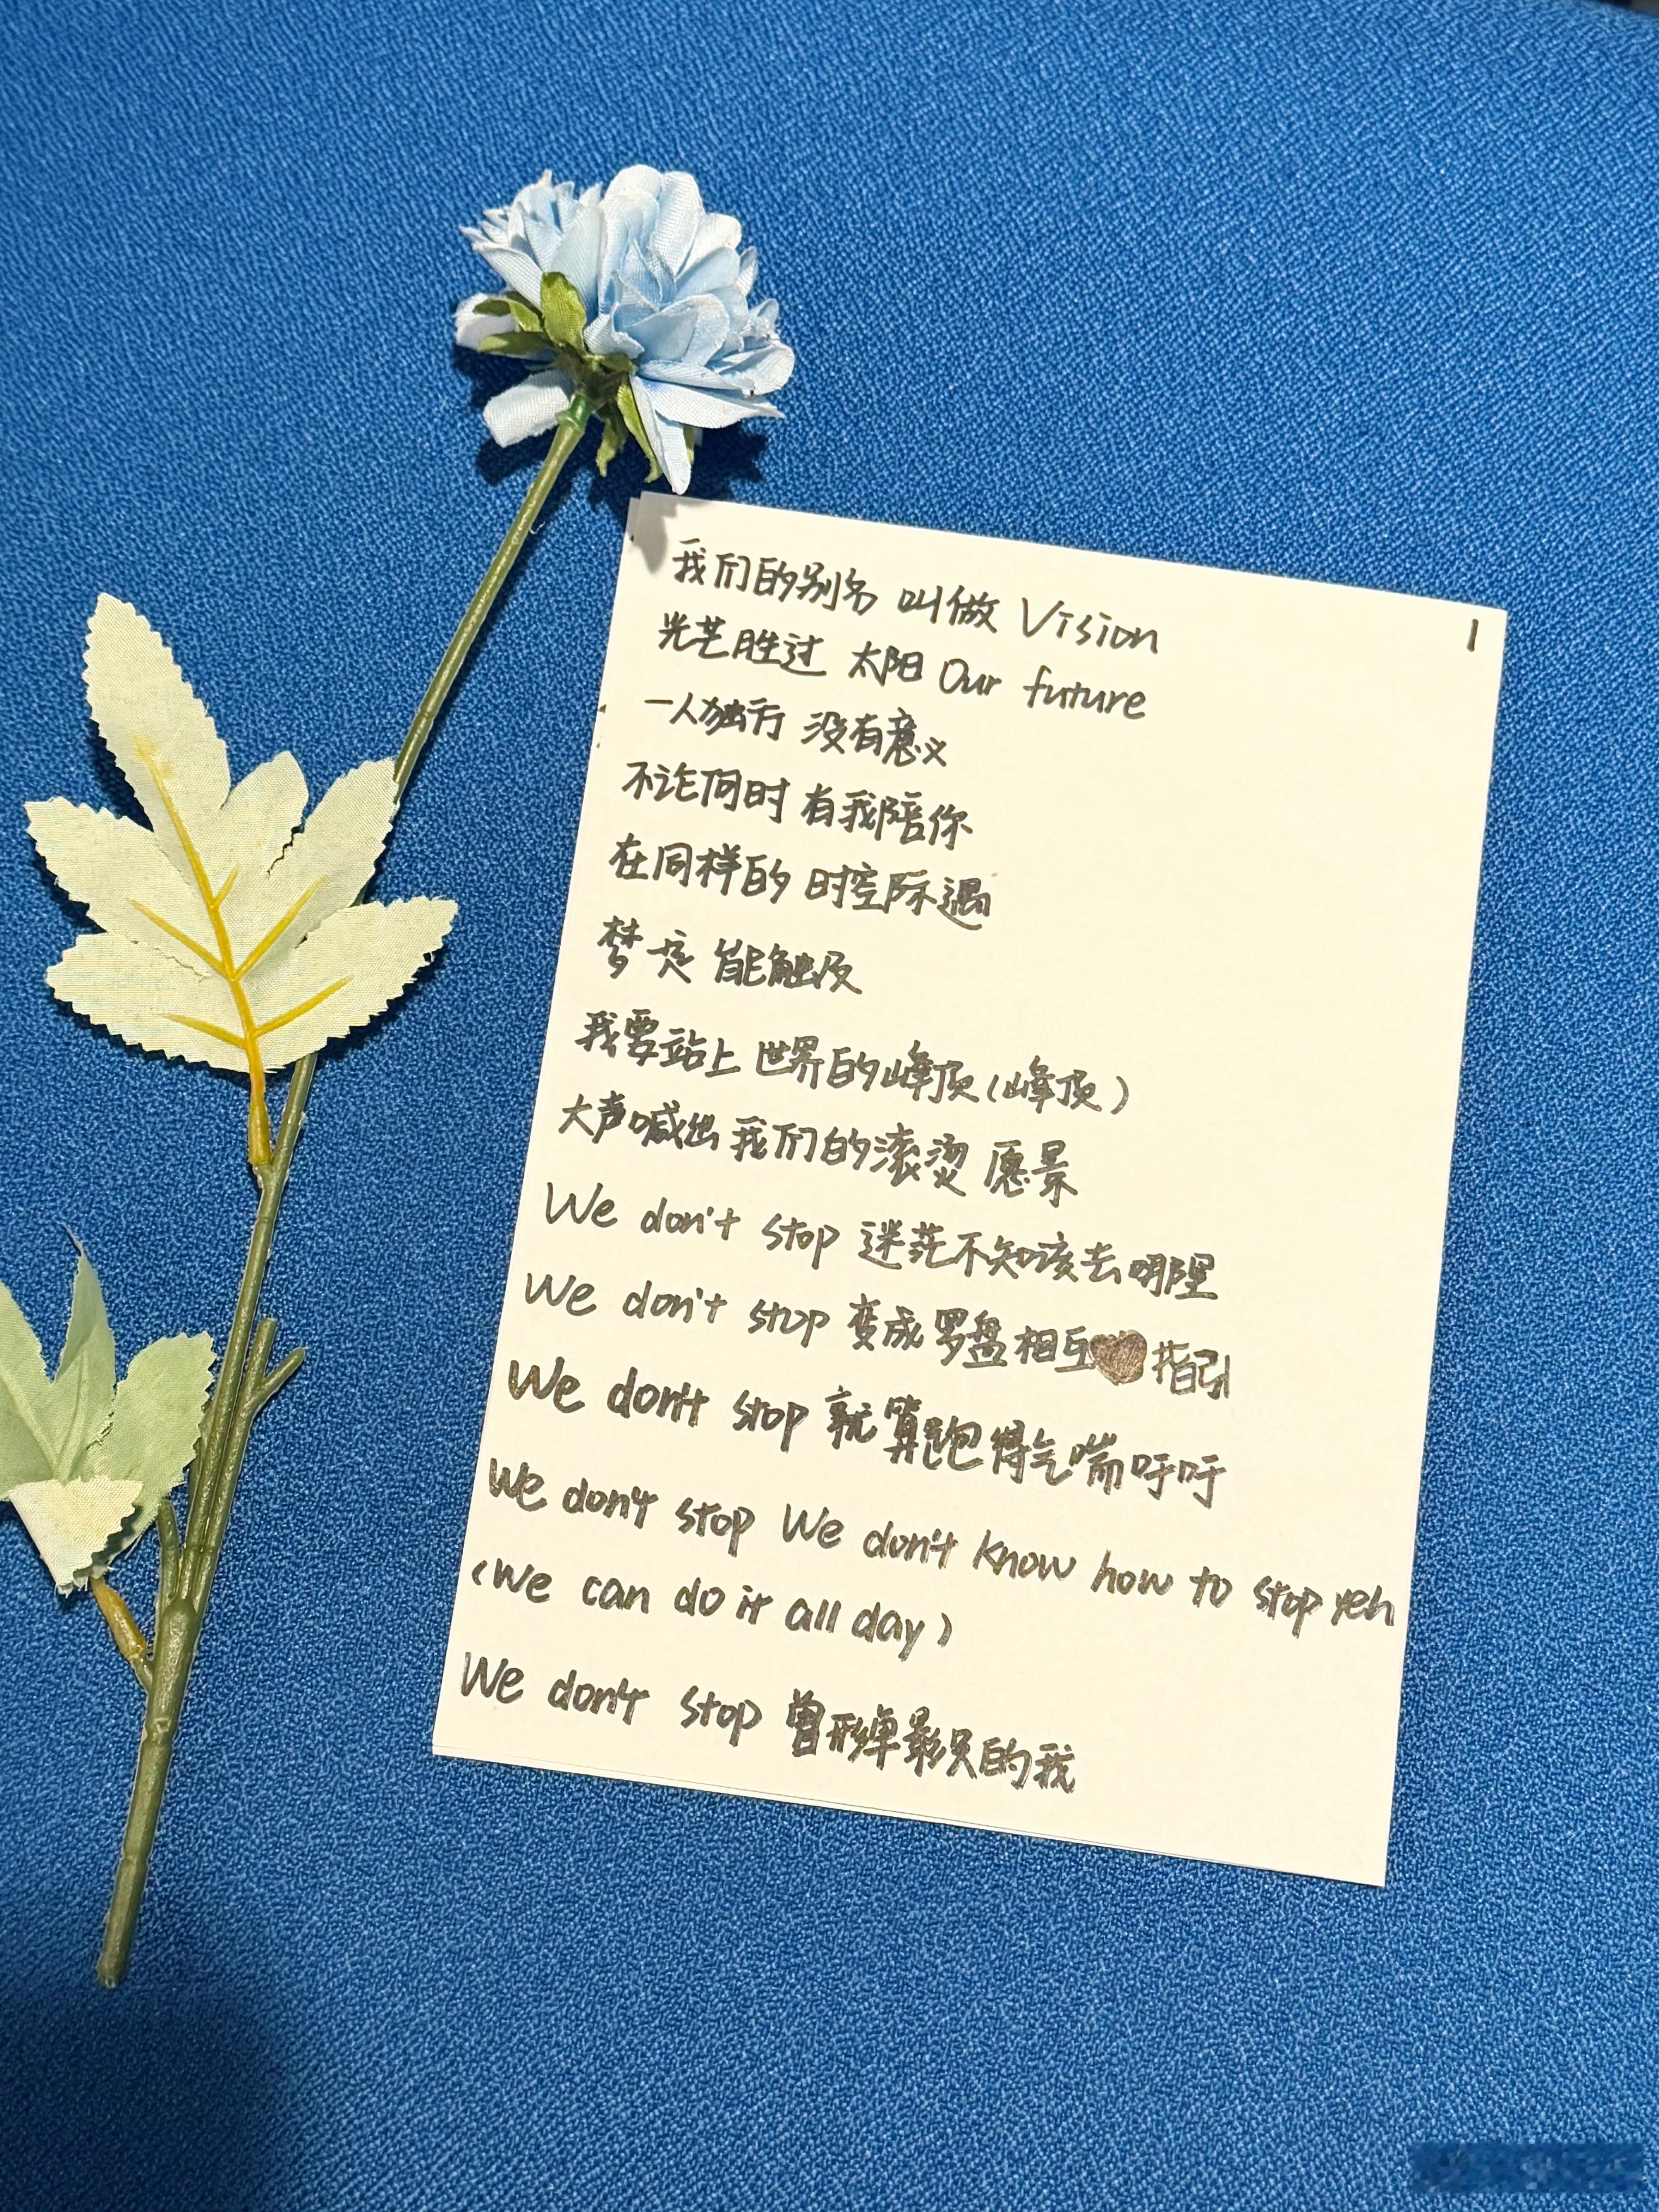 1
我们的别名 叫做 Vision
光芒胜过 太阳 Our future
一人独行 没有意义
不论何时 有我陪你
在同样的 时空际遇
梦一定 能触及
我要站上 世界的峰顶(峰顶)
大声喊出 我们的滚烫 愿景
We don't stop 迷茫不知该去哪里
We don't stop 变成罗盘相互指引
We don't stop 就算跑得气喘呼呼
We don't stop We don't know how to stop yeh
(We can do it all day)
We don't stop 曾形单影只的我